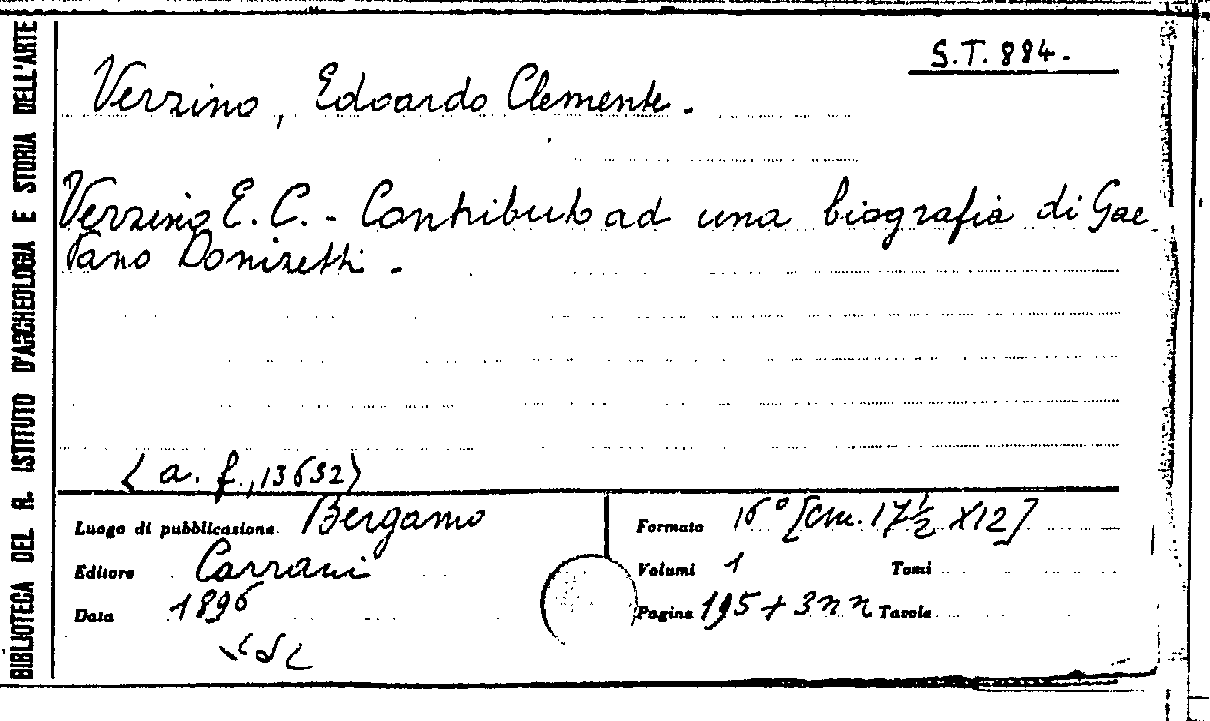 BIBLIOTECA DEL R. ISTITUTO D'ARCHEOLOGIA E STORIA DELL'ARTE
S.T. 884.
Verzino, Edoardo Clemente.
Verzino E. C. - Contributo ad una biografia di Gae
tano Donizetti.
(a. f., 13632)
Luogo di pubblicazione Bergamo
Editore Carrani
Data 1896
Formato 16° [cm. 17½ X12]
Volumi 1 Tomi
Pagine 195 + 3 n n Tavole